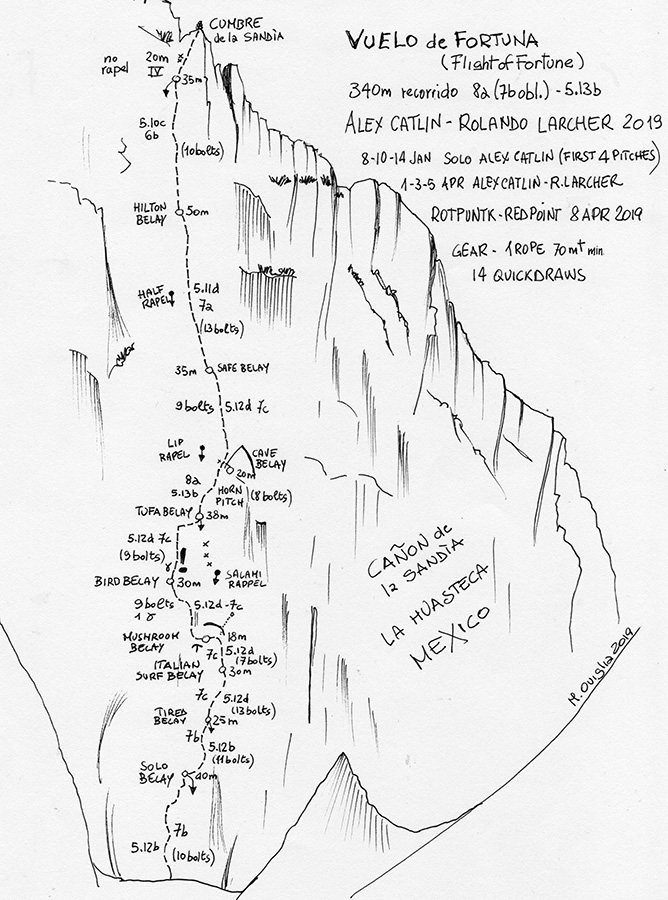 CUMBRE
de la SANDIA
VUELO de FORTUNA
(Flight of Fortune)
340m recorrido 8a (7b obl.) - 5.13b
ALEX CATLIN - ROLANDO LARCHER 2019
8-10-14 JAN SOLO ALEX CATLIN (FIRST 4 PITCHES)
1-3-5 APR ALEX CATLIN - R.LARCHER
ROTPUNTK - REDPOINT 8 APR 2019
GEAR - 1 ROPE 70 mt min
14 QUICKDRAWS
no
rapel
20m
IV
35m
5.10c
6b
(10bolts)
HILTON
BELAY
50m
HALF
RAPEL
5.11d
7a
(13bolts)
35m
SAFE BELAY
9bolts
5.12d 7c
LIP
RAPEL
CAVE
BELAY
20m
8a
5.13b
HORN
PITCH
(8bolts)
TUFA BELAY
38m
5.12d 7c
(9bolts)
!
SALAMI
RAPPEL
BIRD BELAY
30m
9bolts
5.12d-7c
MUSHROOM
BELAY
18m
7c
5.12d
(7bolts)
ITALIAN
SURF BELAY
30m
7c
5.12d
(13bolts)
TIRED
BELAY
25m
7b
5.12b
(11bolts)
SOLO
BELAY
40m
7b
5.12b
(10bolts)
CAÑON de
la SANDÌA
LA HUASTECA
MEXICO
M. Oviglia 2019